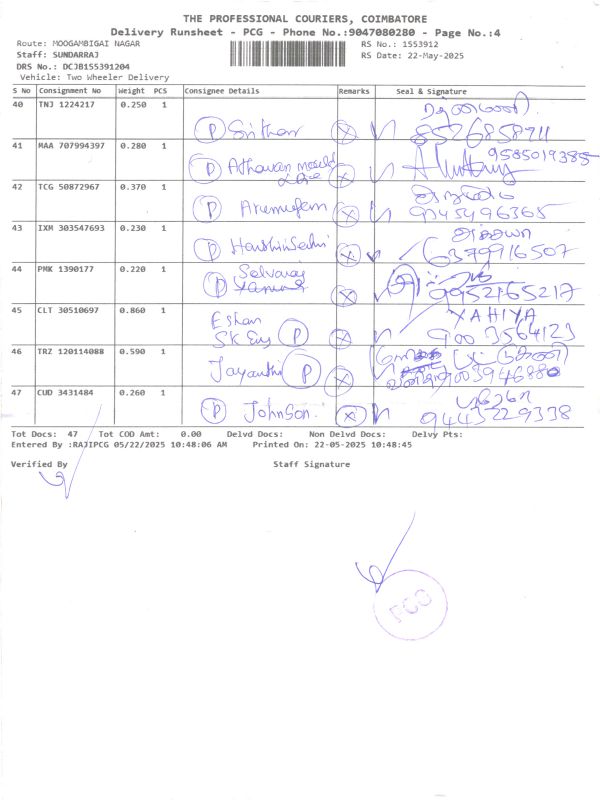 THE PROFESSIONAL COURIERS, COIMBATORE
Delivery Runsheet - PCG - Phone No.:9047080280 - Page No.:4
Route: MOOGAMBIGAI NAGAR RS No.: 1553912
Staff: SUNDARRAJ RS Date: 22-May-2025
DRS No.: DCJB155391204
Vehicle: Two Wheeler Delivery
S No Consignment No Weight PCS Consignee Details Remarks Seal & Signature
40 TNJ 1224217 0.250 1
P Srithar X 8526858711
41 MAA 707994397 0.280 1 9585019385
P Athavan X
42 TCG 50872967 0.370 1
P Arumugam X 9045496365
43 IXM 303547693 0.230 1
P X 6379916507
44 PMK 1390177 0.220 1
Selvaraj
P X 9952165217
45 CLT 30510697 0.860 1 YAHIYA
Eshan
SK Eng P X 900 3564123
46 TRZ 120114088 0.590 1
Jayanthi P X 9003946880
47 CUD 3431484 0.260 1
P Johnson. X 9443229338
Tot Docs: 47 Tot COD Amt: 0.00 Delvd Docs: Non Delvd Docs: Delvy Pts:
Entered By :RAJIPCG 05/22/2025 10:48:06 AM Printed On: 22-05-2025 10:48:45
Verified By Staff Signature
PCG